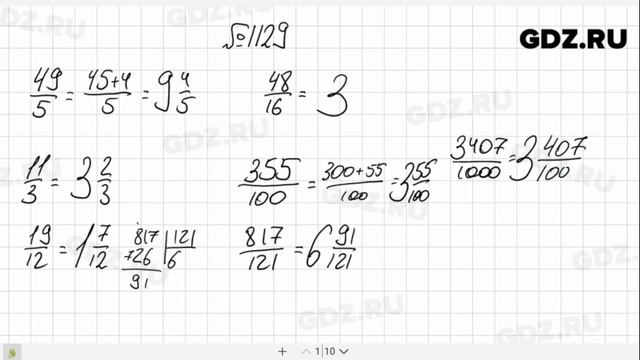 №1129
GDZ.RU
49/5 = 45+4/5 = 9 4/5
48/16 = 3
11/3 = 3 2/3
355/100 = 300+55/100 = 3 55/100
3407/1000 = 3 407/100
19/12 = 1 7/12
817 121
726 6
91
817/121 = 6 91/121
1 10